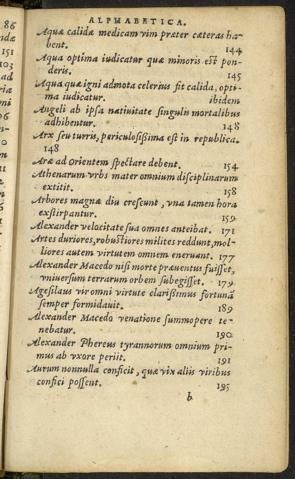 ALPHABETICA.
Aquæ calidæ medicam vim præter cæteras ha-
bent. 144
Aqua optima iudicatur quæ minoris est pon-
deris. 145
Aqua quæ igni admota celerius fit calida, opti-
ma iudicatur. ibidem
Angeli ab ipsa natiuitate singulis mortalibus
adhibentur. 148
Arx seu turris, periculosißima est in republica.
148
Aræ ad orientem spectare debent. 154
Athenarum vrbs mater omnium disciplinarum
extitit. 158
Arbores magnæ diu crescunt, vna tamen hora
exstirpantur. 159
Alexander velocitate sua omnes anteibat. 171
Artes duriores, robustiores milites reddunt, mol-
liores autem virtutem omnem eneruant. 177
Alexander Macedo nisi morte præuentus fuisset,
vniuersum terrarum orbem subegisset. 179
Agesilaus vir omni virtute clarißimus fortunā
semper formidauit. 189
Alexander Macedo venatione summopere te-
nebatur. 190
Alexander Phereus tyrannorum omnium pri-
mus ab vxore periit. 191
Aurum nonnulla conficit, quæ vix aliis viribus
confici possent. 195
b
86
151
103